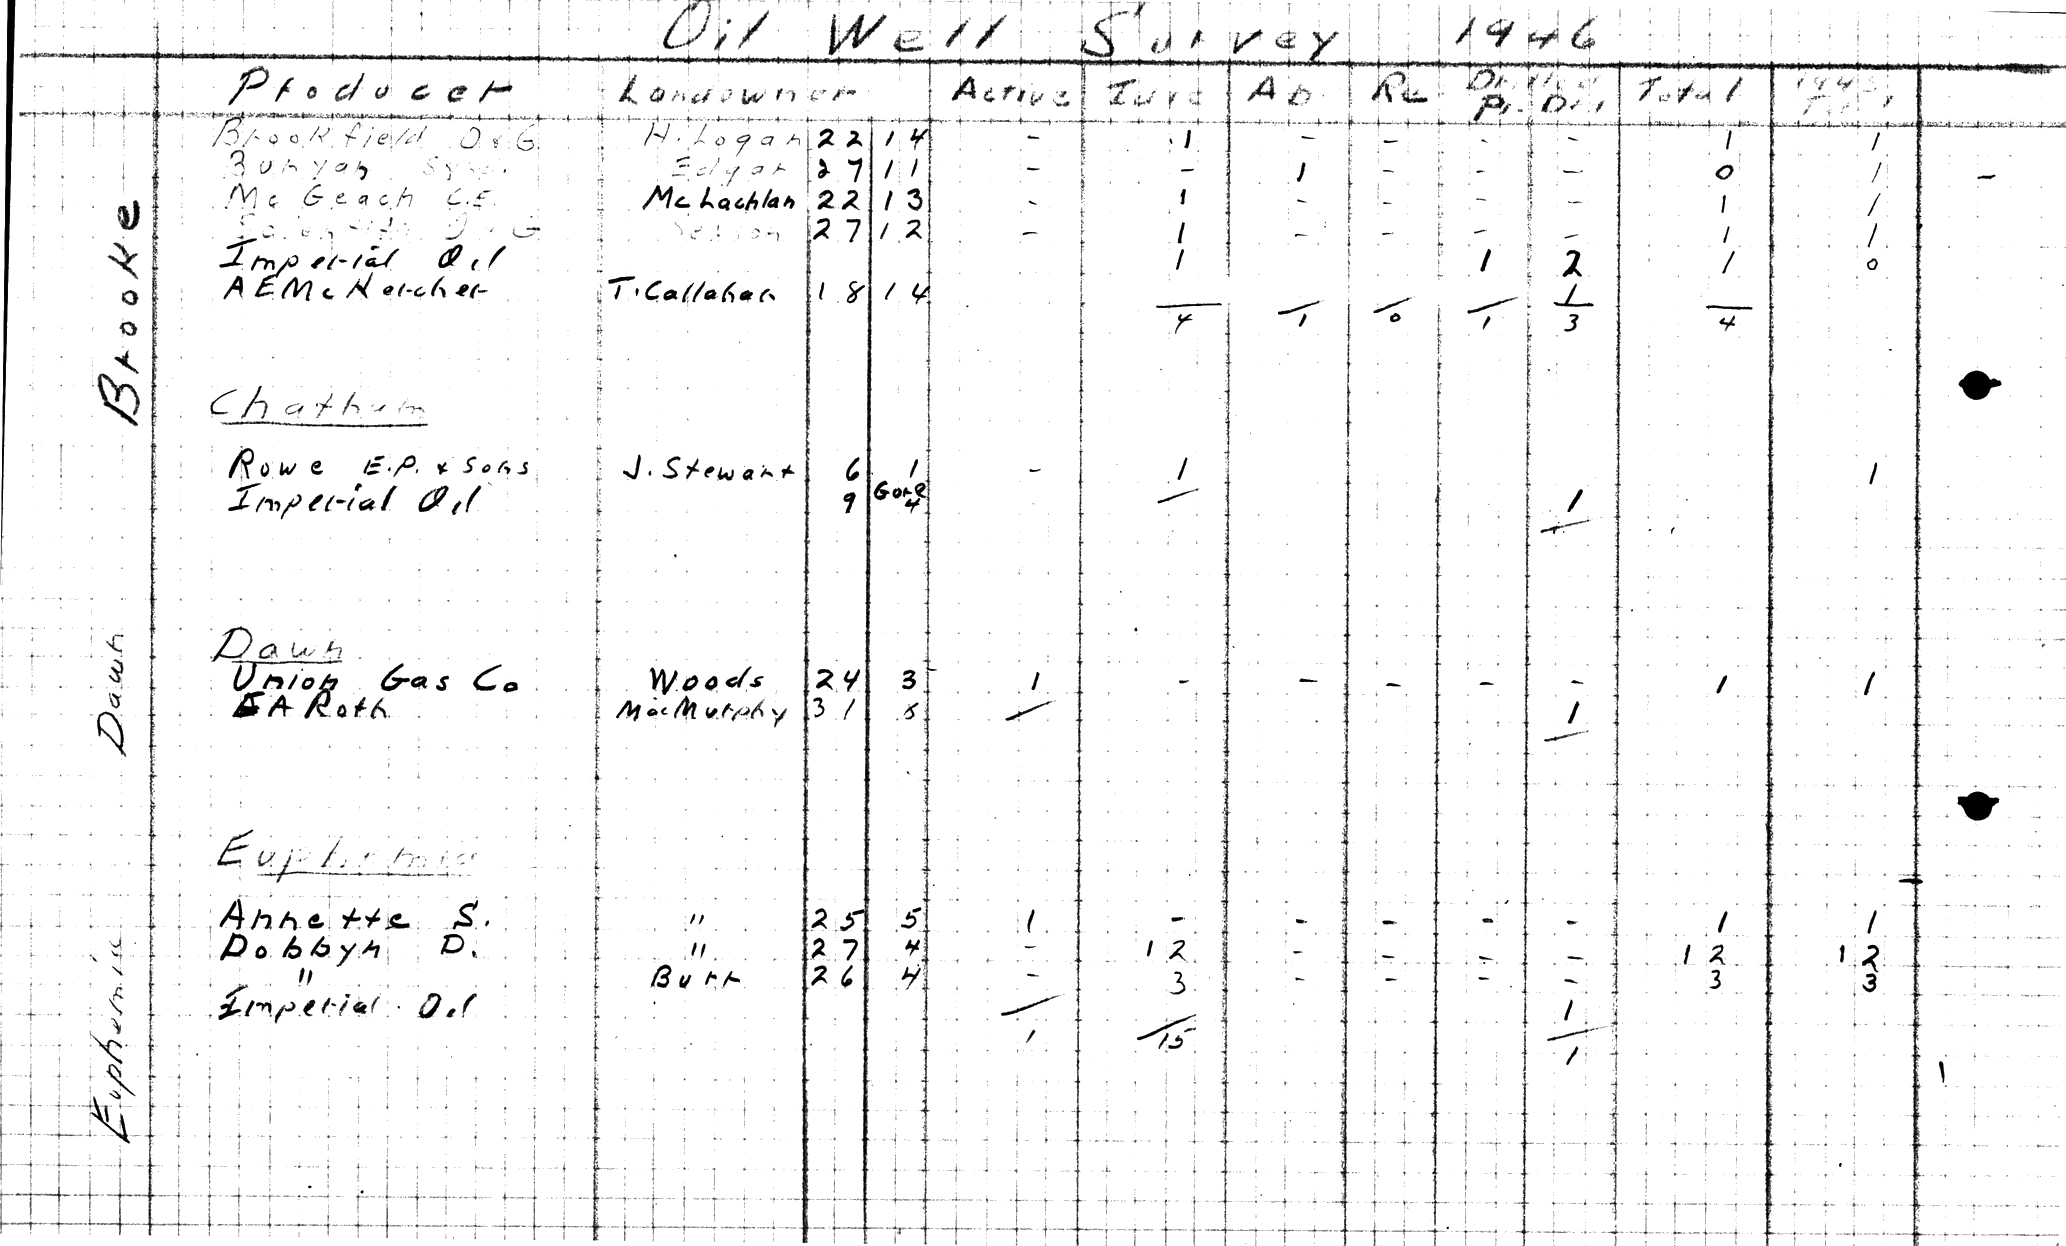 Oil Well Survey 1946
Producer Landowner Active Ab. Re Total
Pr. Dri
Brookfield O & G H. Logan 22 14 - 1 - - - - 1 1
Bunyan Edgar 27 11 - - 1 - - - 0 1 -
Mc Geach C.E. McLachlan 22 13 - 1 - - - - 1 1
27 12 - 1 - - - - 1 1
Imperial Oil 1 1 2 1 0
A E McKercher T. Callahan 18 14 1
4 1 0 1 3 4
Brooke
Chatham
Rowe E.P. & Sons J. Stewart 6 1 - 1 1
Imperial Oil 9 Gore 4 1
Dawn
Union Gas Co Woods 24 3 1 - - - - - 1 1
E A Roth MacMurphy 31 1
Dawn
Euphemia
Annette S. " 25 5 1 - - - - - 1 1
Dobbyn D. " 27 4 - 12 - - - - 12 12
" Burr 26 4 - 3 - - - - 3 3
Imperial Oil 1
1 15 1
1
Euphemia